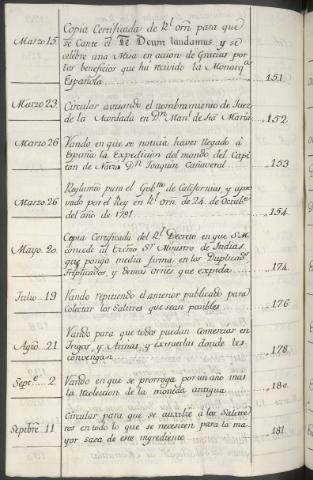 Copia Certificada de Rl. orñ. para que
Marzo 15. se Cante el Te Deum laudamus, y se
celebre una Misa en accion de Gracias por
los beneficios que há recivido la Monarqa.
Española 151
Marzo 23. Circular avisando el nombramiento de Juez
de la Acordada en Dn. Manl. de Sta. Maria 152
Marzo 26 Vando en que se noticia haver llegado á
España la Expedicion del mando del Capi
tan de Navio Dn. Joaquin Cañaveral 153
Reglamto. para el Gobno. de Californias, y apro
Marzo. 26 vado por el Rey en Rl. orñ. de 24. de Octube.
del año de 1781. 154
Copia Certificada del Rl. Decreto en que S.M.
Mayo. 20. concede al Exmo. Sr. Ministro de Indias,
que ponga media firma en los Duplicads.
Triplicados, y demas orñes que expida 174
Julio. 19 Vando repitiendo el anterior publicado para
colectar los Salitres que sean posibles 176
Vando para que todos puedan Comerciar en
Agto. 21 Trigos, y Arinas, y extraerlas donde les
convenga 178
Septe. 2 Vando en que se prorroga por un año mas
la recoleccion de la moneda antigua 180
Circular para que se auxilie á los Salitre
Septbre. 11 ros en todo lo que se necesiten para la ma
yor saca de este ingrediente 181